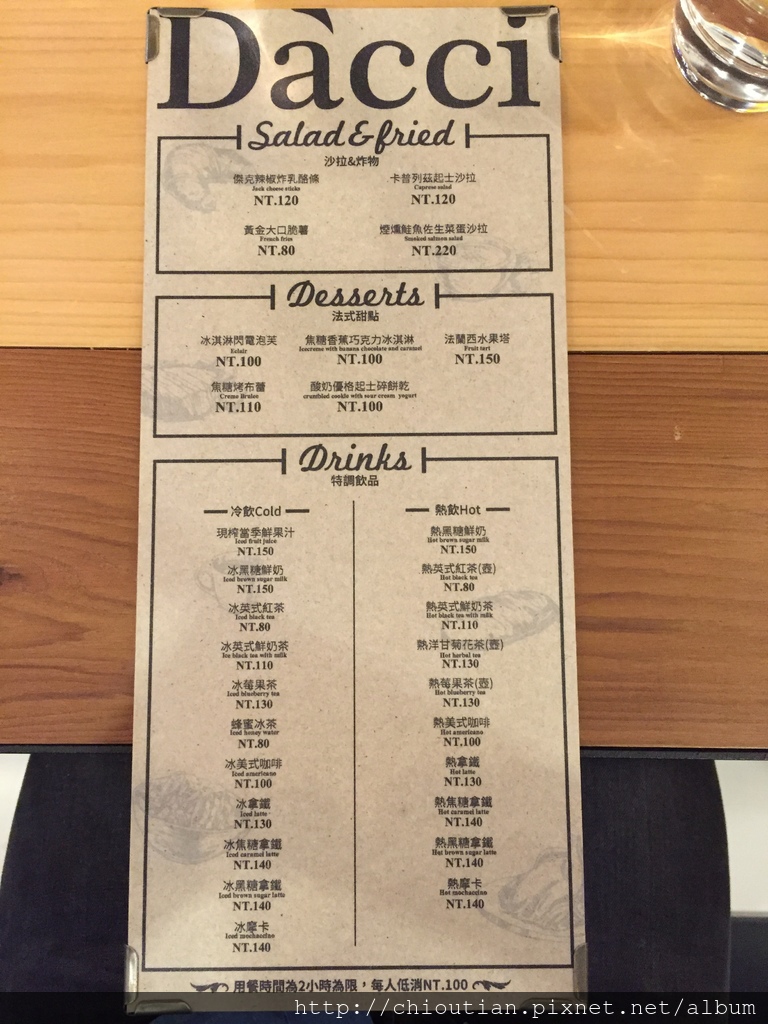 Dàcci
Salad & fried
沙拉&炸物
傑克辣椒炸乳酪條
Jack cheese sticks
NT.120
卡普列茲起士沙拉
Caprese salad
NT.120
黃金大口脆薯
French fries
NT.80
煙燻鮭魚佐生菜蛋沙拉
Smoked salmon salad
NT.220
Desserts
法式甜點
冰淇淋閃電泡芙
Eclair
NT.100
焦糖香蕉巧克力冰淇淋
Icecreme with banana chocolate and caramel
NT.100
法蘭西水果塔
Fruit tart
NT.150
焦糖烤布蕾
Creme Brulee
NT.110
酸奶優格起士碎餅乾
crumbled cookie with sour cream yogurt
NT.100
Drinks
特調飲品
冷飲Cold
現榨當季鮮果汁
Iced fruit juice
NT.150
冰黑糖鮮奶
Iced brown sugar milk
NT.150
冰英式紅茶
Iced black tea
NT.80
冰英式鮮奶茶
Ice black tea with milk
NT.110
冰莓果茶
Iced blueberry tea
NT.130
蜂蜜冰茶
Iced honey water
NT.80
冰美式咖啡
Iced americano
NT.100
冰拿鐵
Iced latte
NT.130
冰焦糖拿鐵
Iced caramel latte
NT.140
冰黑糖拿鐵
Iced brown sugar latte
NT.140
冰摩卡
Iced mochaccino
NT.140
熱飲Hot
熱黑糖鮮奶
Hot brown sugar milk
NT.150
熱英式紅茶(壺)
Hot black tea
NT.80
熱英式鮮奶茶
Hot black tea with milk
NT.110
熱洋甘菊花茶(壺)
Hot herbal tea
NT.130
熱莓果茶(壺)
Hot blueberry tea
NT.130
熱美式咖啡
Hot americano
NT.100
熱拿鐵
Hot latte
NT.130
熱焦糖拿鐵
Hot caramel latte
NT.140
熱黑糖拿鐵
Hot brown sugar latte
NT.140
熱摩卡
Hot mochaccino
NT.140
用餐時間為2小時為限，每人低消NT.100
http://chioutian.pixnet.net/album